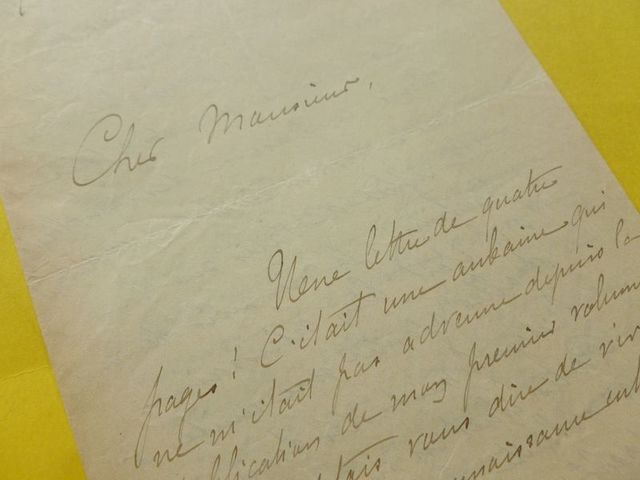 Cher Monsieur,
Une lettre de quatre
pages ! C'était une aubaine qui
ne m'était pas advenue depuis la
publication de mon premier volume
vous dire de viv
connaissance